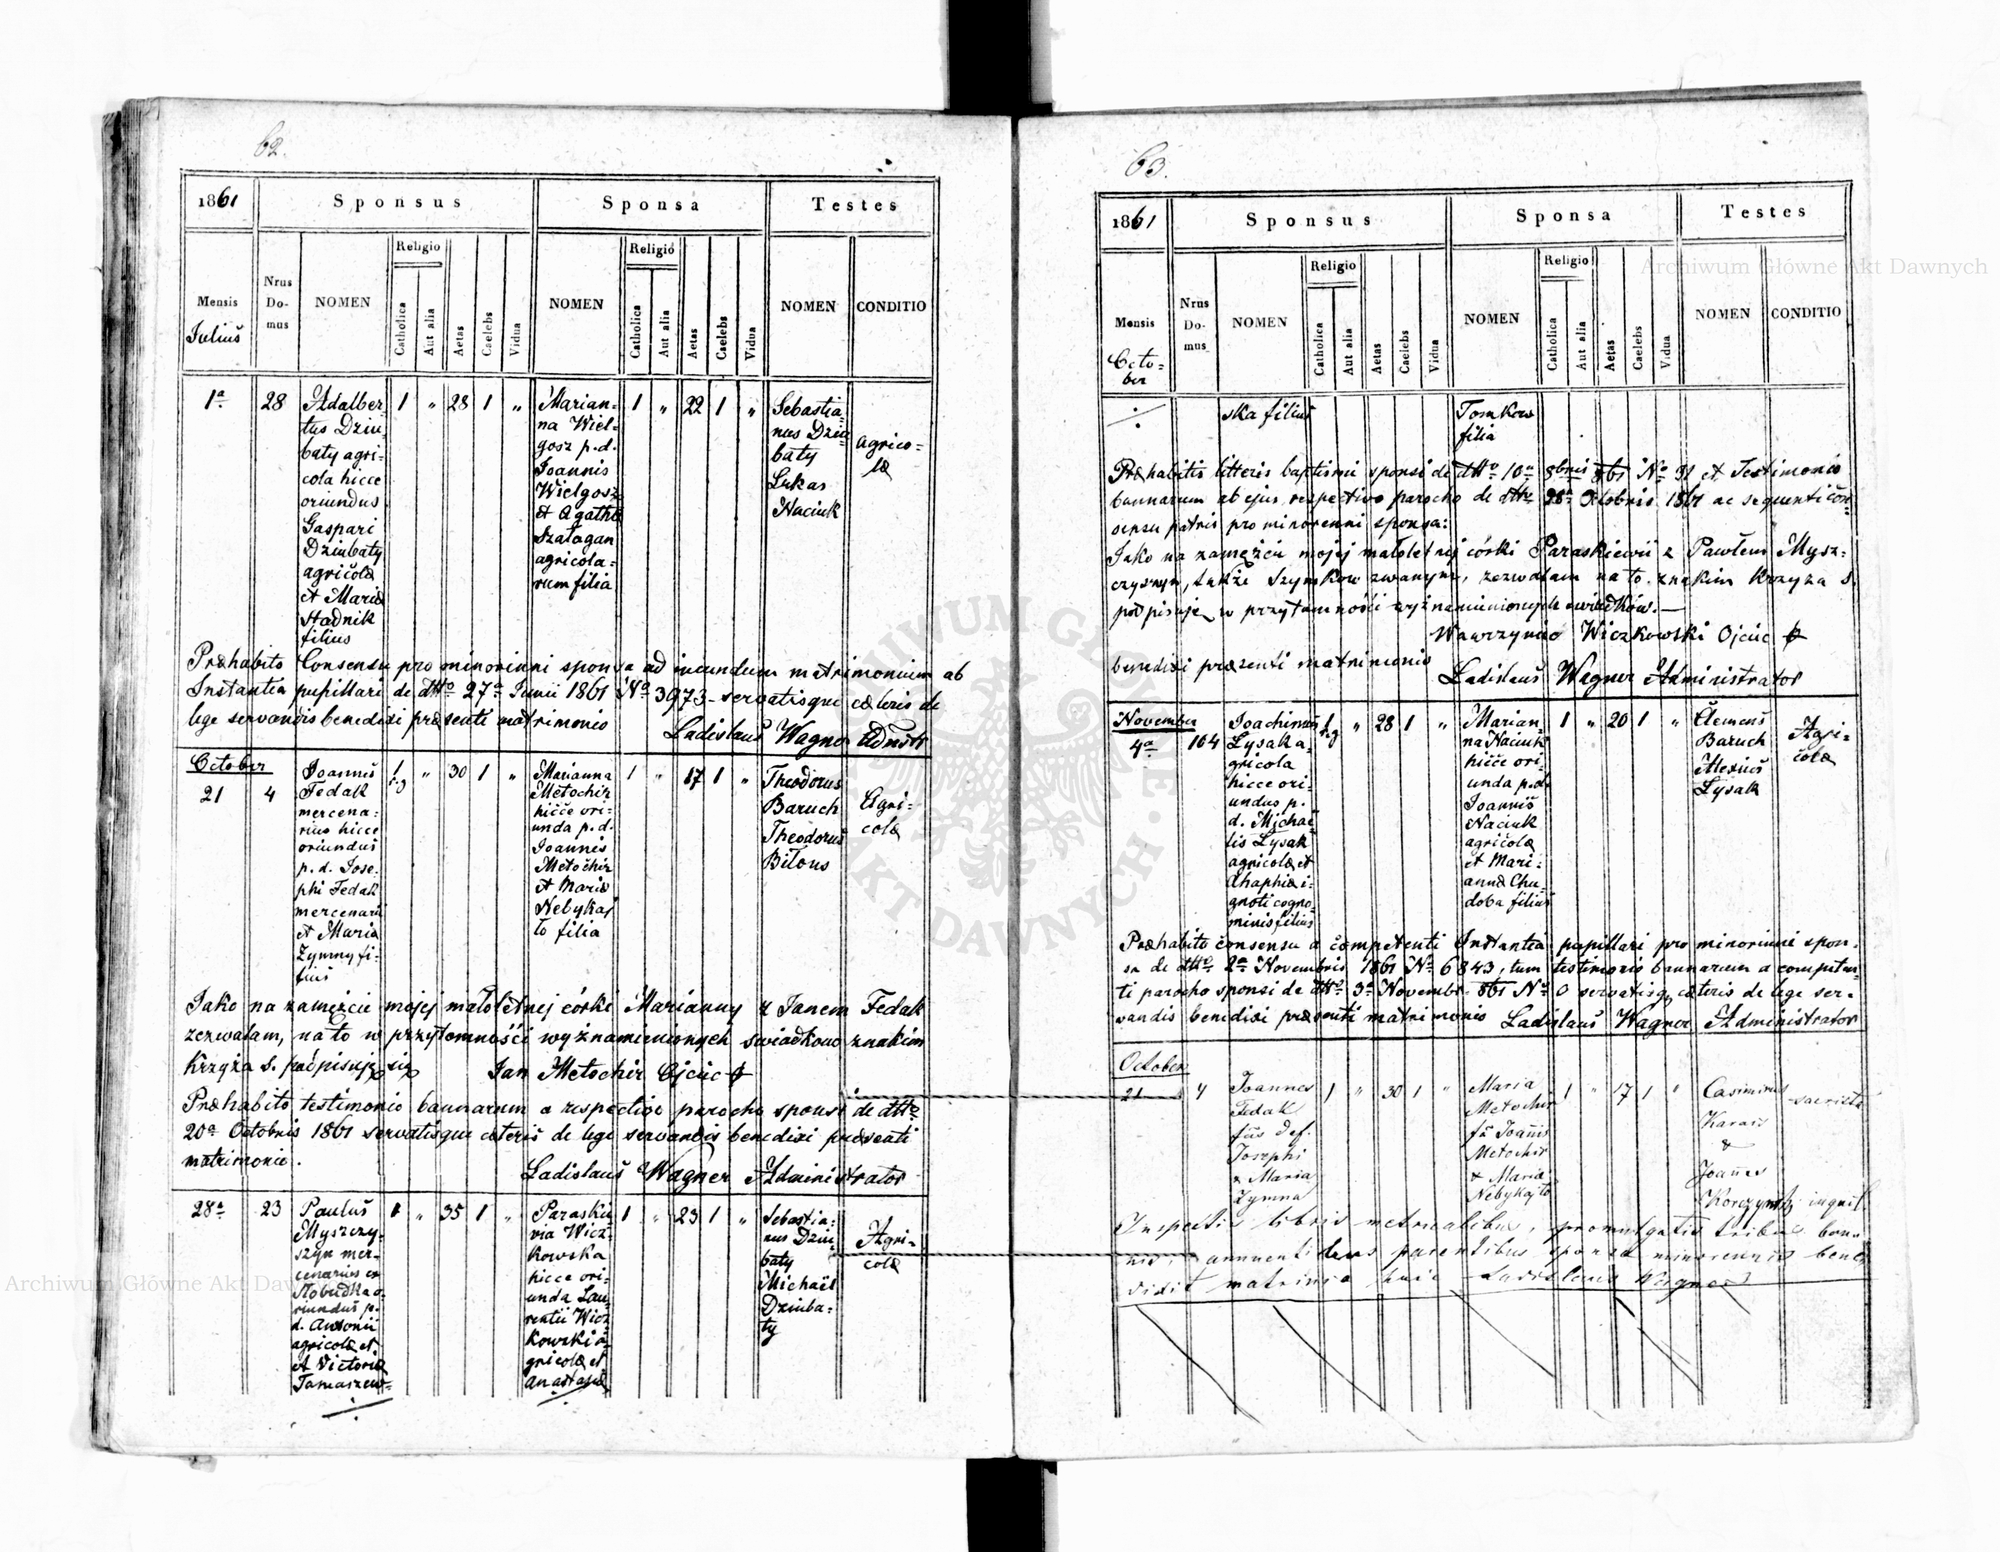 62.
1861
Sponsus
Sponsa
Testes
Mensis
Julius
Nrus
Do-
mus
NOMEN
Religio
Catholica
Aut alia
Aetas
Caelebs
Vidua
NOMEN
Religio
Catholica
Aut alia
Aetas
Caelebs
Vidua
NOMEN
CONDITIO
1a
28
Adalber-
tus Dziu-
baty agri-
cola hicce
oriundus
Gaspari
Dziubaty
agricolæ
et Mariæ
Stadnik
filius
1 „ 28 1 „
Marian-
na Wiel-
gosz p.d.
Joannis
Wielgosz
et Agathæ
Szatagan
agricola-
rum filia
1 „ 22 1 „
Sebastia-
nus Dziu-
baty
Lukas
Haciuk
agrico-
læ
Præhabito Consensu pro minorenni sponsa ad ineundum matrimonium ab
Instantia pupillari de dtto 27a Junii 1861 No 3973 servatisque cæteris de
lege servandis benedixi præsenti matrimonio
Ladislaus Wagner
October
21
4
Joannes
Fedak
mercena-
rius hicce
oriundus
p.d. Jose-
phi Fedak
mercenarii
et Maria
Zymny fi-
lius
1 „ 30 1 „
Marianna
Metochir
hicce ori-
unda p.d.
Joannis
Metochir
et Mariæ
Nebykaj
to filia
1 „ 17 1 „
Theodorus
Baruch
Theodorus
Bilous
Agri-
colæ
Jako na zamęźcie mojej małoletnej córki Marianny z Janem Fedak
zezwalam, na to w przytomności wyźnamienionych swiadkow znakim
Krzyźa S. podpisuję się Jan Metochir Ojciec †
Præhabito testimonio bannarum a respectivo parocho sponsi de dtto
20a Octobris 1861 servatisque cæteris de lege servandis benedixi præsenti
matrimonio.
Ladislaus Wagner Administrator
28a
23
Paulus
Myszczy-
szyn mer-
cenarius ex
Pobudka o-
riundus p.
d. Antonii
agricolæ et
et Victoriæ
Tomaszew-
1 „ 35 1 „
Paraske-
via Wicz-
kowska
hicce ori-
unda Lau-
rentii Wicz-
kowski a-
gricolæ et
Anastasiæ
1 „ 23 1 „
Sebastia-
nus Dziu-
baty
Michael
Dziuba-
ty
Agri-
colæ
63.
1861
Sponsus
Sponsa
Testes
Mensis
Octo-
ber
Nrus
Do-
mus
NOMEN
Religio
Catholica
Aut alia
Aetas
Caelebs
Vidua
NOMEN
Religio
Catholica
Aut alia
Aetas
Caelebs
Vidua
NOMEN
CONDITIO
ska filius
Tomkow
filia
Præhabitis litteris baptismi sponsi de dtto 10a 8bris 861 No 31 et Testimonio
bannarum ab ejus respectivo parocho de dtto 28a Octobris 1861 ac sequenti con-
sensu patris pro minorenni sponsa:
Jako na zamęźcie mojej małoletnej córki Paraskiewii z Pawłem Mysz-
czyszyn, takźe Szymkow zwanym, zezwalam na to znakim Krzyźa S.
podpisuję w przytomności wyźnamienionych swiadków.—
Wawrzyniec Wiczkowski Ojciec †
benedixi præsenti matrimonio
Ladislaus Wagner Administrator
November
4a
104
Joachimus
Lysak a-
gricola
hicce ori-
undus p.
d. Michae-
lis Lysak
agricolæ et
Ahaphiæ i-
gnoti cogno-
minis filius
„ 28 1 „
Marian-
na Haciuk
hicce ori-
unda p.d.
Joannis
Haciuk
agricolæ
et Mari-
annæ Chu-
doba filius
1 „ 20 1 „
Clemens
Baruch
Alexius
Lysak
Agri-
colæ
Præhabito consensu a competenti Instantia pupillari pro minorenni spon-
sa de dtto 2a Novembris 1861 No 6843, tum testimonio bannarum a competen-
ti parocho sponsi de dtto 3a Novembr. 861 No 0 servatisq cæteris de lege ser-
vandis benedixi præsenti matrimonio Ladislaus Wagner Administrator
October
21
4
Joannes
Fedak
fius def.
Josephi
& Maria
Zymna
1 „ 30 1 „
Maria
Metochir
fa Joannis
Metochir
& Mariæ
Nebykajto
1 „ 17 1 „
Casimirus
Karais
&
Joannes
Korczynski
Inspectis libris metricalibus, promulgatis tribus ban-
nis, annuentibus parentibus sponsa minorennis bene-
dixit matrimonio huic Ladislaus Wagner
Archiwum Główne Akt Dawnych
Archiwum Główne Akt Dawnych
ARCHIWUM GŁÓWNE AKT DAWNYCH